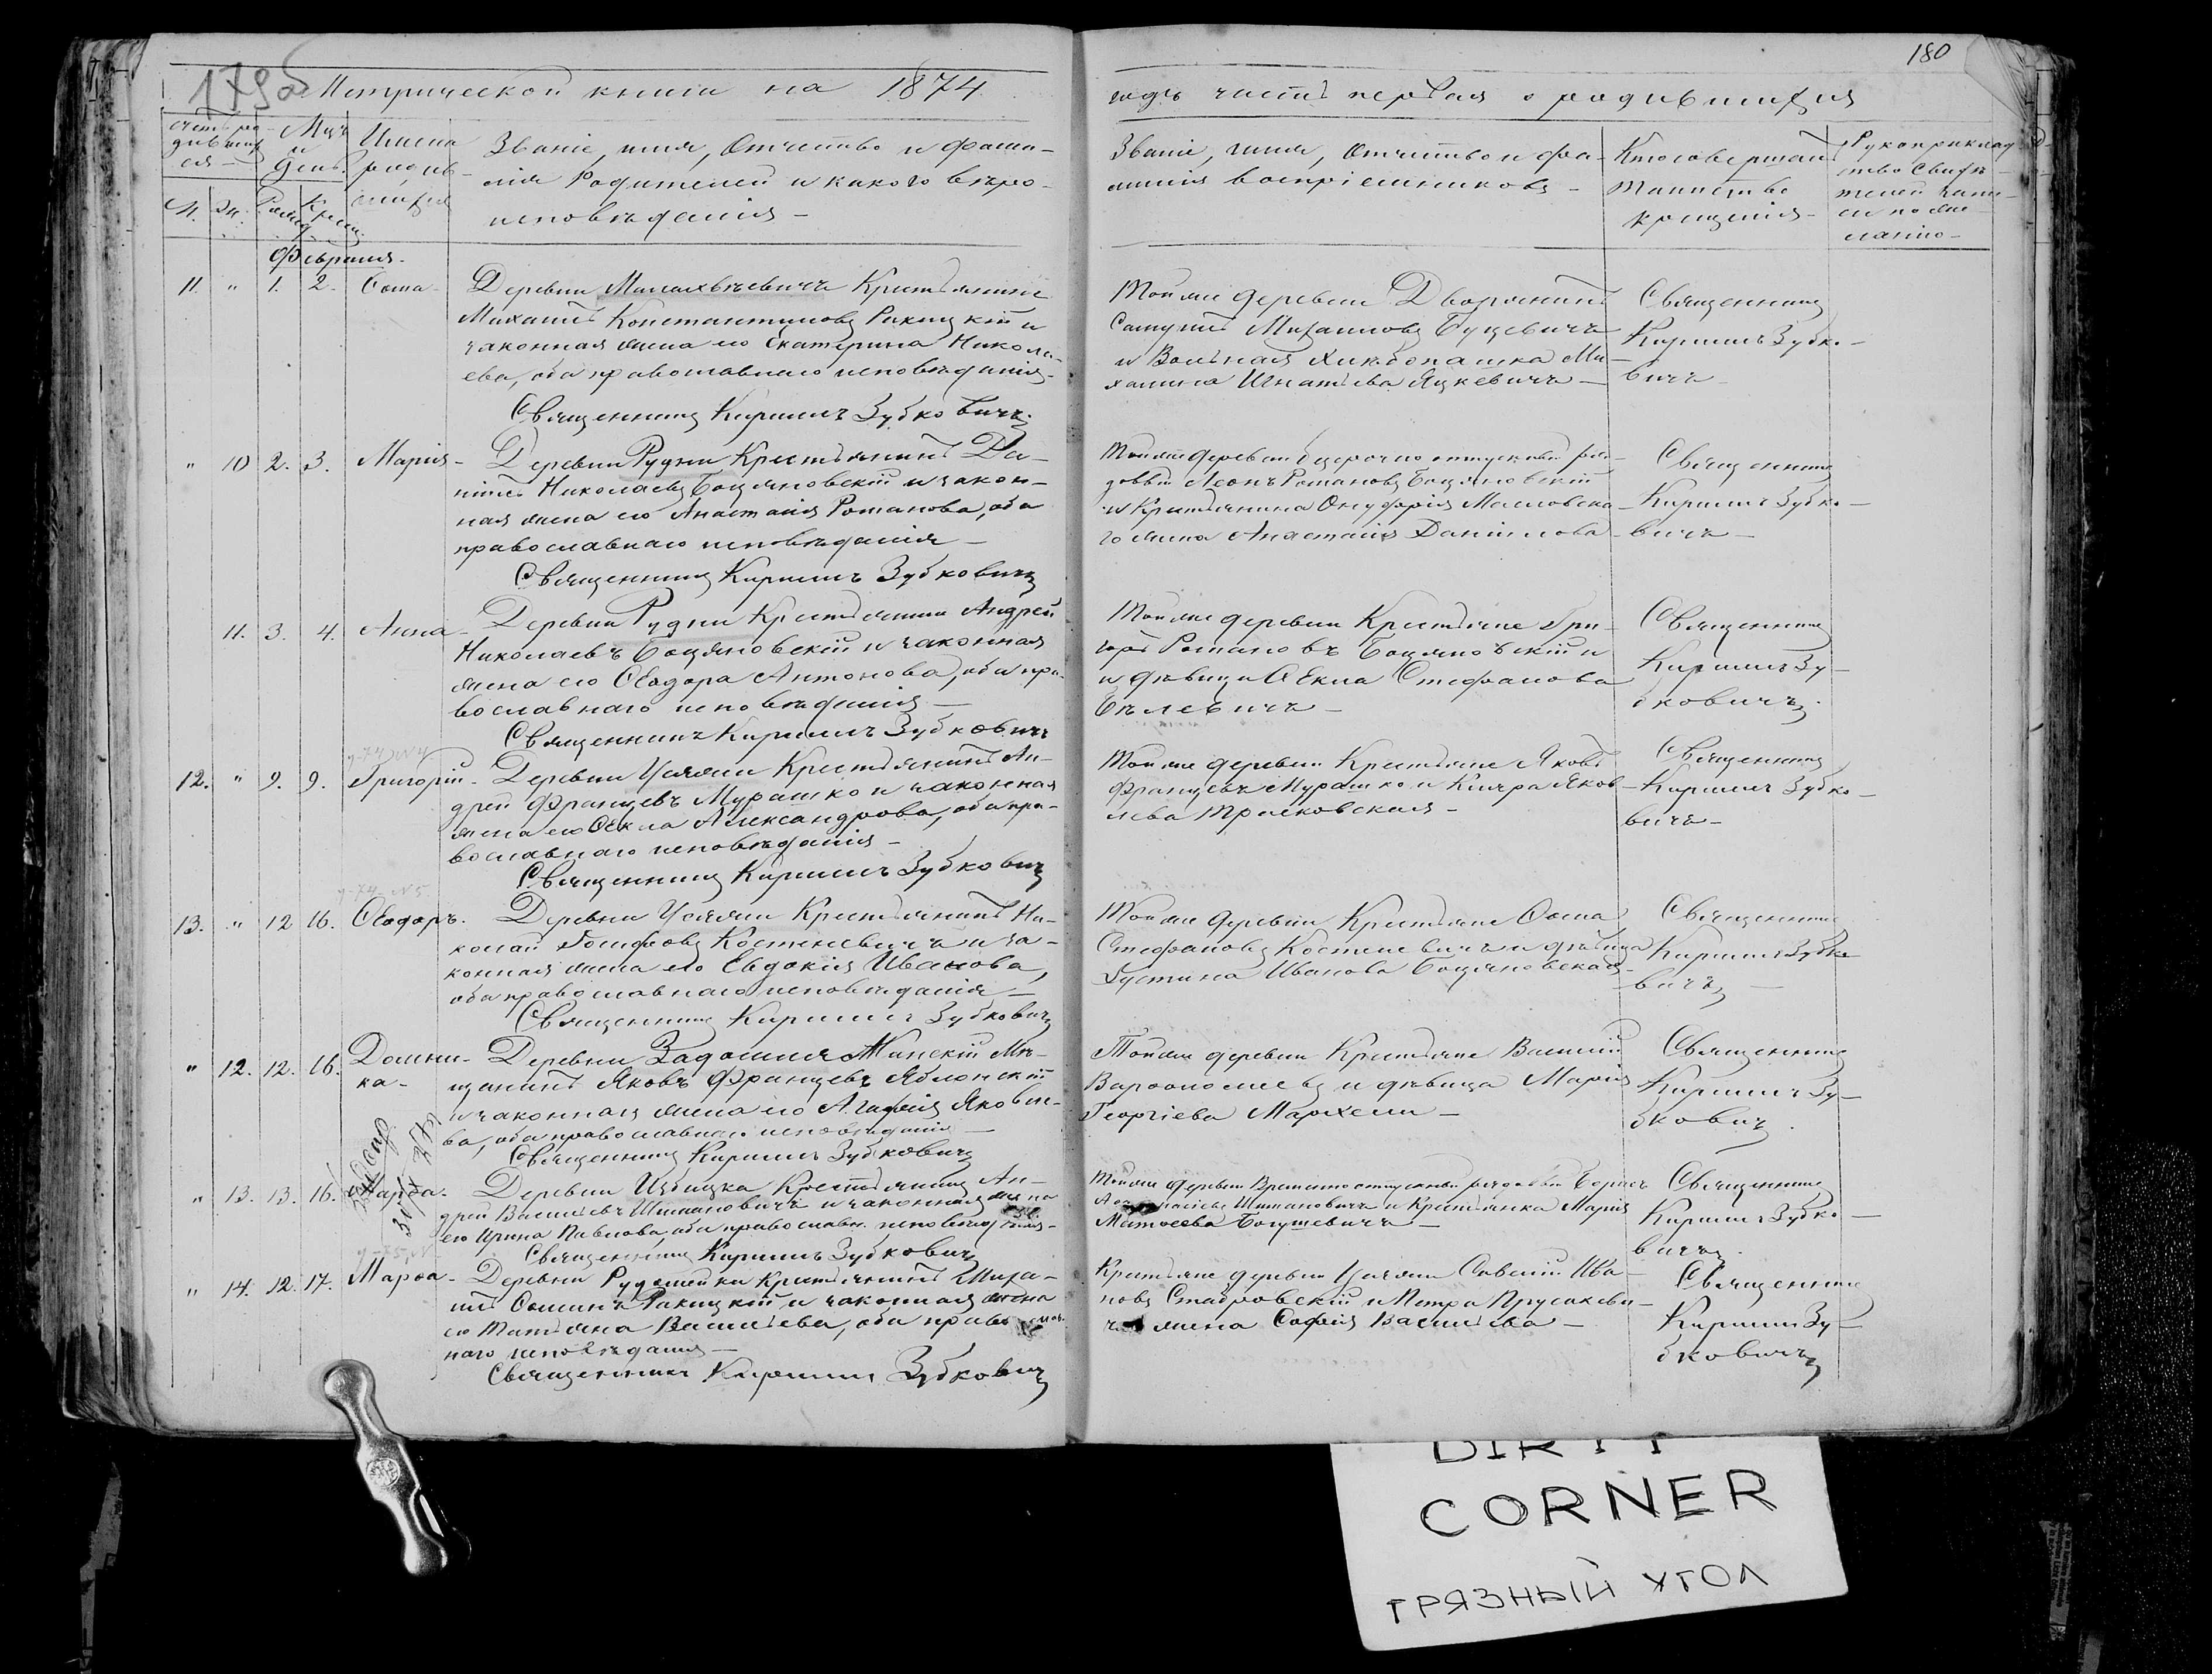 179об
180
Метрической книги на 1874
годъ часть первая о родившихся
Счетъ ро-
дивших
ся
Мцъ
и
День.
Имена
родив-
шихся
Званіе, имя, Отчество и фами-
лія Родителей и какого вѣро-
исповѣданія -
М. Ж. Крещ.
Званіе, имя, Отчество и фа-
милія воспріемниковъ -
Кто совершалъ
таинство
крещенія -
Рукоприклад
ство свидѣ-
телей запи-
си по же-
ланію -
Февраля.
11. " 1. 2. Ѳома - Деревни Крестьянинъ
Михаилъ Константиновъ Ракицкій и
законная жена его Екатерина Никола-
ева, оба православнаго исповѣданія -
Священникъ Кириллъ Зубковичъ.
Той же деревни Дворянинъ
Михаиловъ Буцевичъ
и Вольная Хлѣбопашка Ми-
халина Игнатьева Яцкевичъ -
Священникъ
Кириллъ Зубко-
вичъ -
" 10 2. 3. Марія - Деревни Рудни Крестьянинъ Да-
ніилъ Николаевъ Боцяновскій и закон-
ная жена его Анастасія Романова, оба
православнаго исповѣданія -
Священникъ Кириллъ Зубковичъ
Той же деревни безсрочно отпускный ря-
довый Леонъ Романовъ Боцяновскій
и Крестьянина Онуфрія Масловска-
го жена Анастасія Даніилова -
Священникъ
Кириллъ Зубко-
вичъ -
11. 3. 4. Анна - Деревни Рудни Крестьянинъ Андрей
Николаевъ Боцяновскій и законная
жена его Ѳеодора Антонова, оба пра-
вославнаго исповѣданія -
Священникъ Кириллъ Зубковичъ
Той же деревни Крестьяне Гри-
горій Романовъ Боцяновскій и
и дѣвица Ѳекла Стефанова
Бѣлевичъ -
Священникъ
Кириллъ Зу-
бковичъ.
12. " 9. 9. Григорій - Деревни Усяжи Крестьянинъ Ан-
дрей Францевъ Мурашко и законная
жена его Ѳекла Александрова, оба пра-
вославнаго исповѣданія -
Священникъ Кириллъ Зубковичъ
Той же деревни Крестьяне Яковъ
Францевъ Мурашко и Яков-
лева -
Священникъ
Кириллъ Зубко-
вичъ -
13. " 12 16. Ѳеодоръ. Деревни Усяжи Крестьянинъ Ни-
колай Іосифовъ Костеневичъ и за-
конная жена его Евдокія Иванова,
оба православнаго исповѣданія -
Священникъ Кириллъ Зубковичъ
Той же деревни Крестьяне Ѳома
Стефановъ Костеневичъ и дѣвица
Іустина Иванова Боцяновская -
Священникъ
Кириллъ Зубко-
вичъ -
" 12. 12. 16. Домни-
ка -
Деревни Задомля Минскій Мѣ-
щанинъ Яковъ Францевъ Яблонскій
и законная жена его Агафія Яковле-
ва, оба православнаго исповѣданія -
Священникъ Кириллъ Зубковичъ
Той же деревни Крестьяне Василій
Варѳоломеевъ и дѣвица Марія
Георгіева -
Священникъ
Кириллъ Зу-
бковичъ.
" 13. 13. 16. Марѳа. Деревни Крестьянинъ Ан-
дрей Васильевъ Шимановичъ и законная жена
его Ирина Павлова, оба православн. исповѣданія -
Священникъ Кириллъ Зубковичъ
Той же деревни Временно отпускный рядовый Борисъ
Шимановичъ и Крестьянка Марія
Матѳеева Богушевичъ -
Священникъ
Кириллъ Зубко-
вичъ.
" 14. 12. 17. Марѳа - Деревни Рудомейки Крестьянинъ Миха-
илъ Ѳоминъ Ракицкій и законная жена
его Татьяна Васильева, оба правосл
наго исповѣданія -
Священникъ Кириллъ Зубковичъ
Крестьяне деревни Усяжи Савелій Ива-
новъ Ставровскій и Петра Прусакеви-
ча жена Софія Васильева -
Священникъ
Кириллъ Зу-
бковичъ
DIRTY
CORNER
ГРЯЗНЫЙ УГОЛ